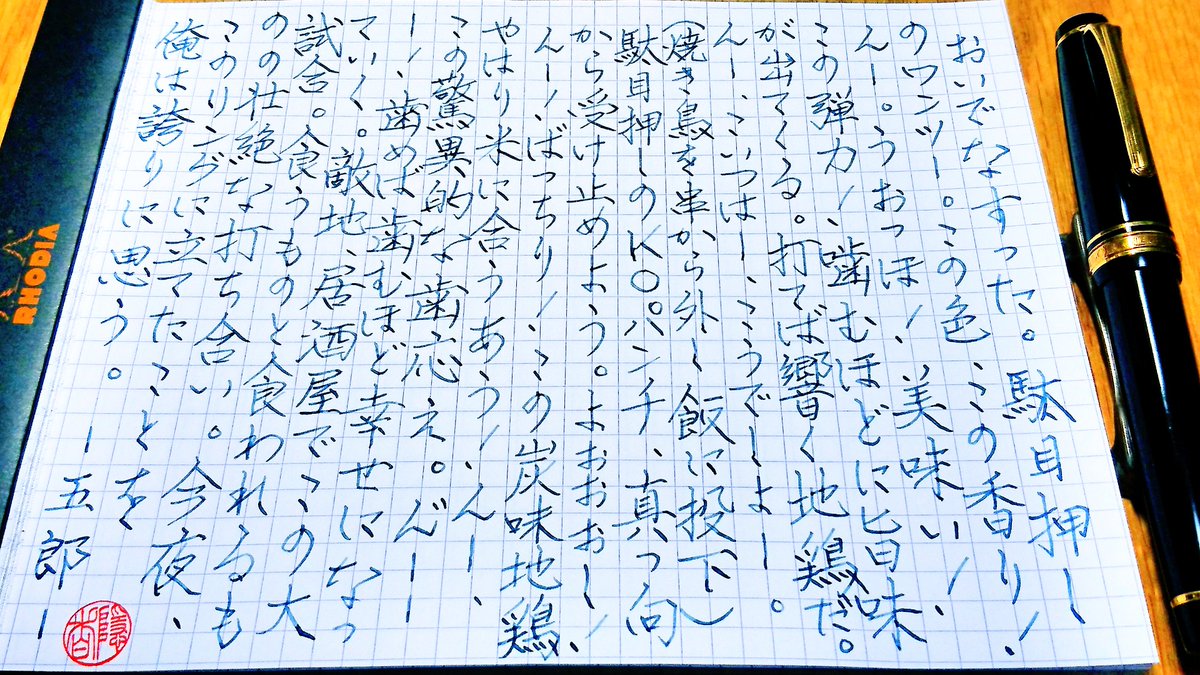 おいでなすった。駄目押し
のワンツー。この色、この香り!、
んー。うおっほ!、美味い!、
この弾力!、噛むほどに旨味
が出てくる。打てば響く地鶏だ。
んー、こいつはー、こうでしょー。
(焼き鳥を串から外し飯に投下)
駄目押しのKO.パンチ、真っ向
から受け止めよう。よおおおし!
んー!、ばっちり!、この炭味地鶏、
やはり米に合うあう!、んー、
この驚異的な歯応え。んー
ー!、歯めば歯むほど幸せになっ
ていく。敵地、居酒屋でこの大
試合。食うものと食われるも
のの壮絶な打ち合い。今夜、
このリングに立てたことを
俺は誇りに思う。
ー五郎ー
RHODIA